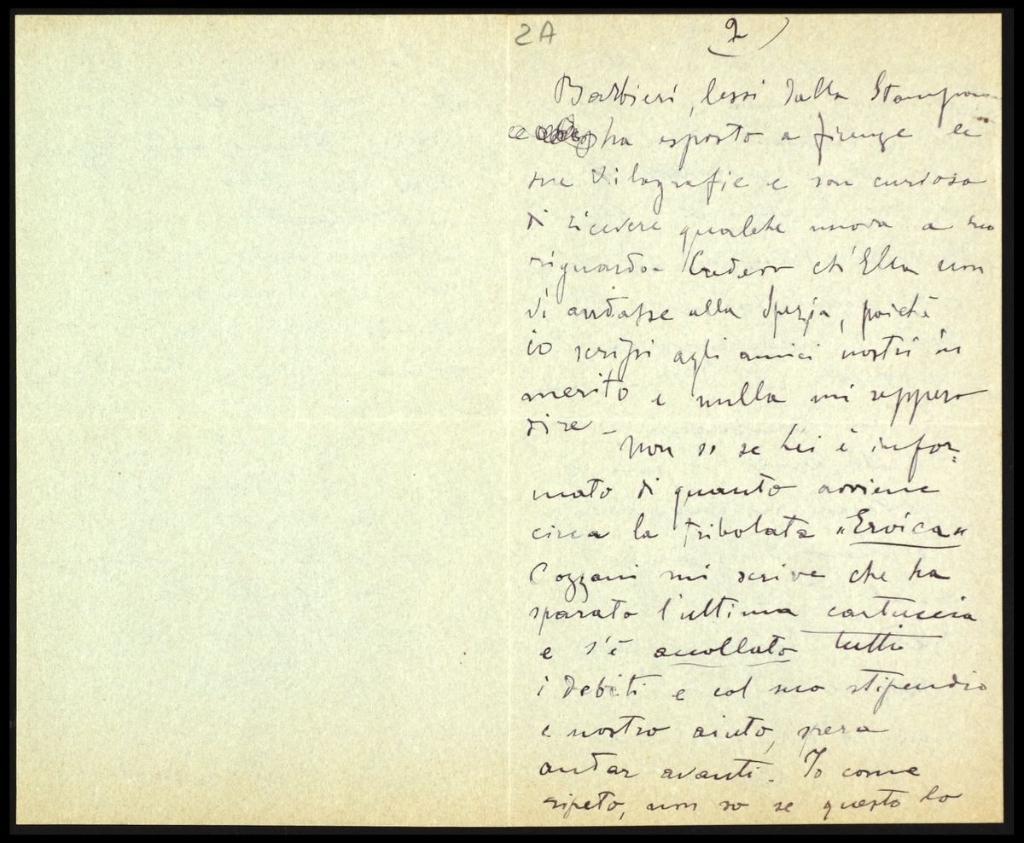 2A 2)
Barbieri, lessi dalla Stampa
ha esposto a firenze le
sue xilografie e son curiosa
di ricevere qualche nuova a suo
riguardo. Credevo ch'Ella non
vi andasse alla Spezia, poichè
io scrissi agli amici nostri in
merito e nulla mi seppero
dire – Non so se Lei è infor-
mato di quanto avviene
circa la tribolata "Eroica"
Cozzani mi scrive che ha
sparato l'ultima cartuccia
e s'è accollato tutti
i debiti e col suo stipendio
e nostro aiuto, spera
andar avanti. Io come
ripeto, non so se questo lo